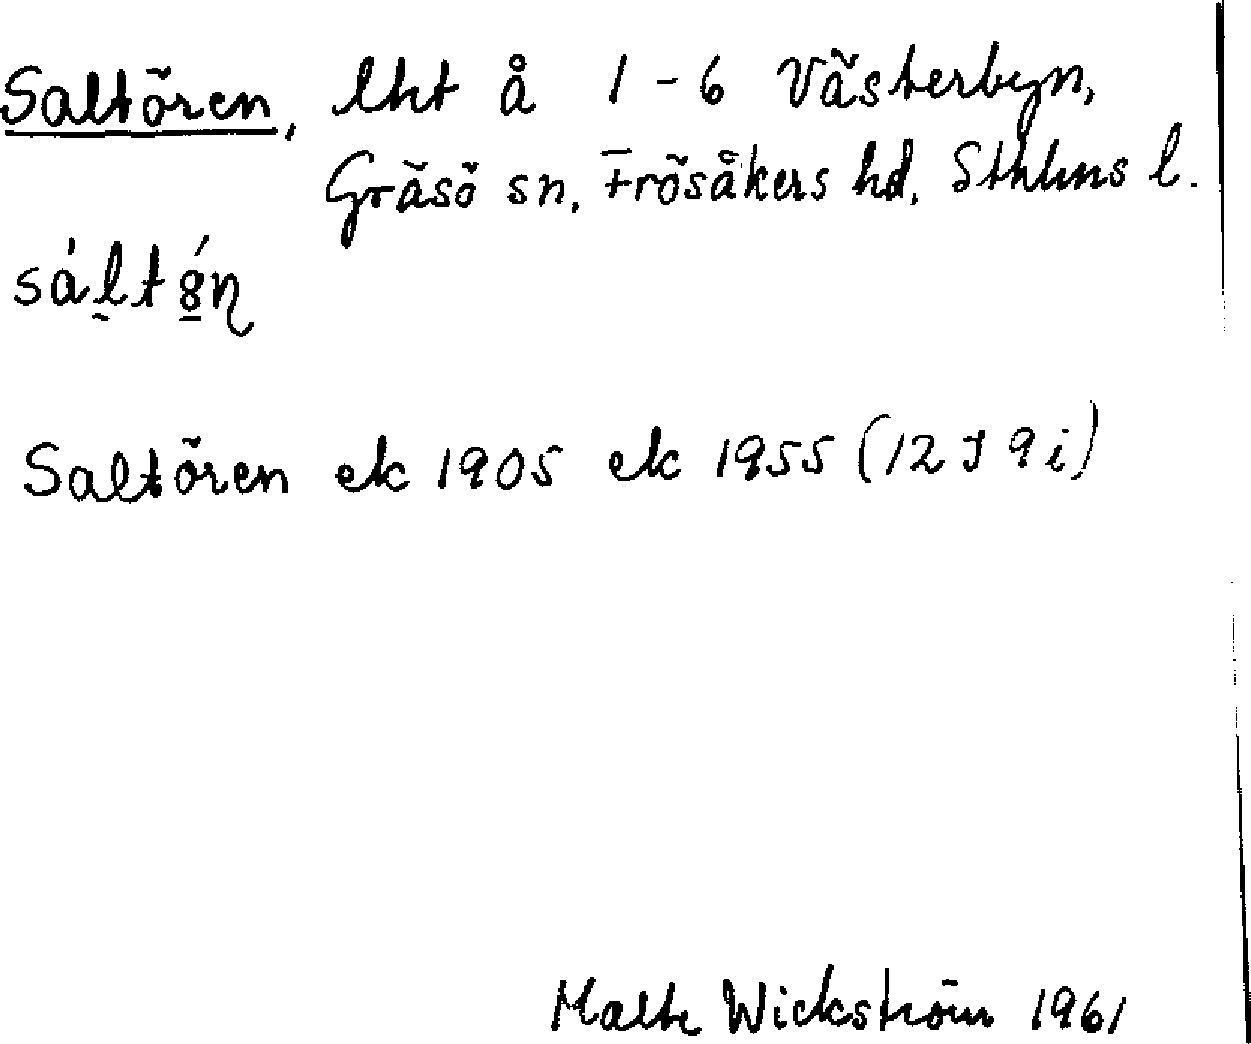 Saltören, lht å 1-6 Västerbyn,
Gräsö sn, Frösåkers hd, Sthlms l.
Saltören ek 1905 ek 1955 (12 J 9 i)
Malte Wickström 1961